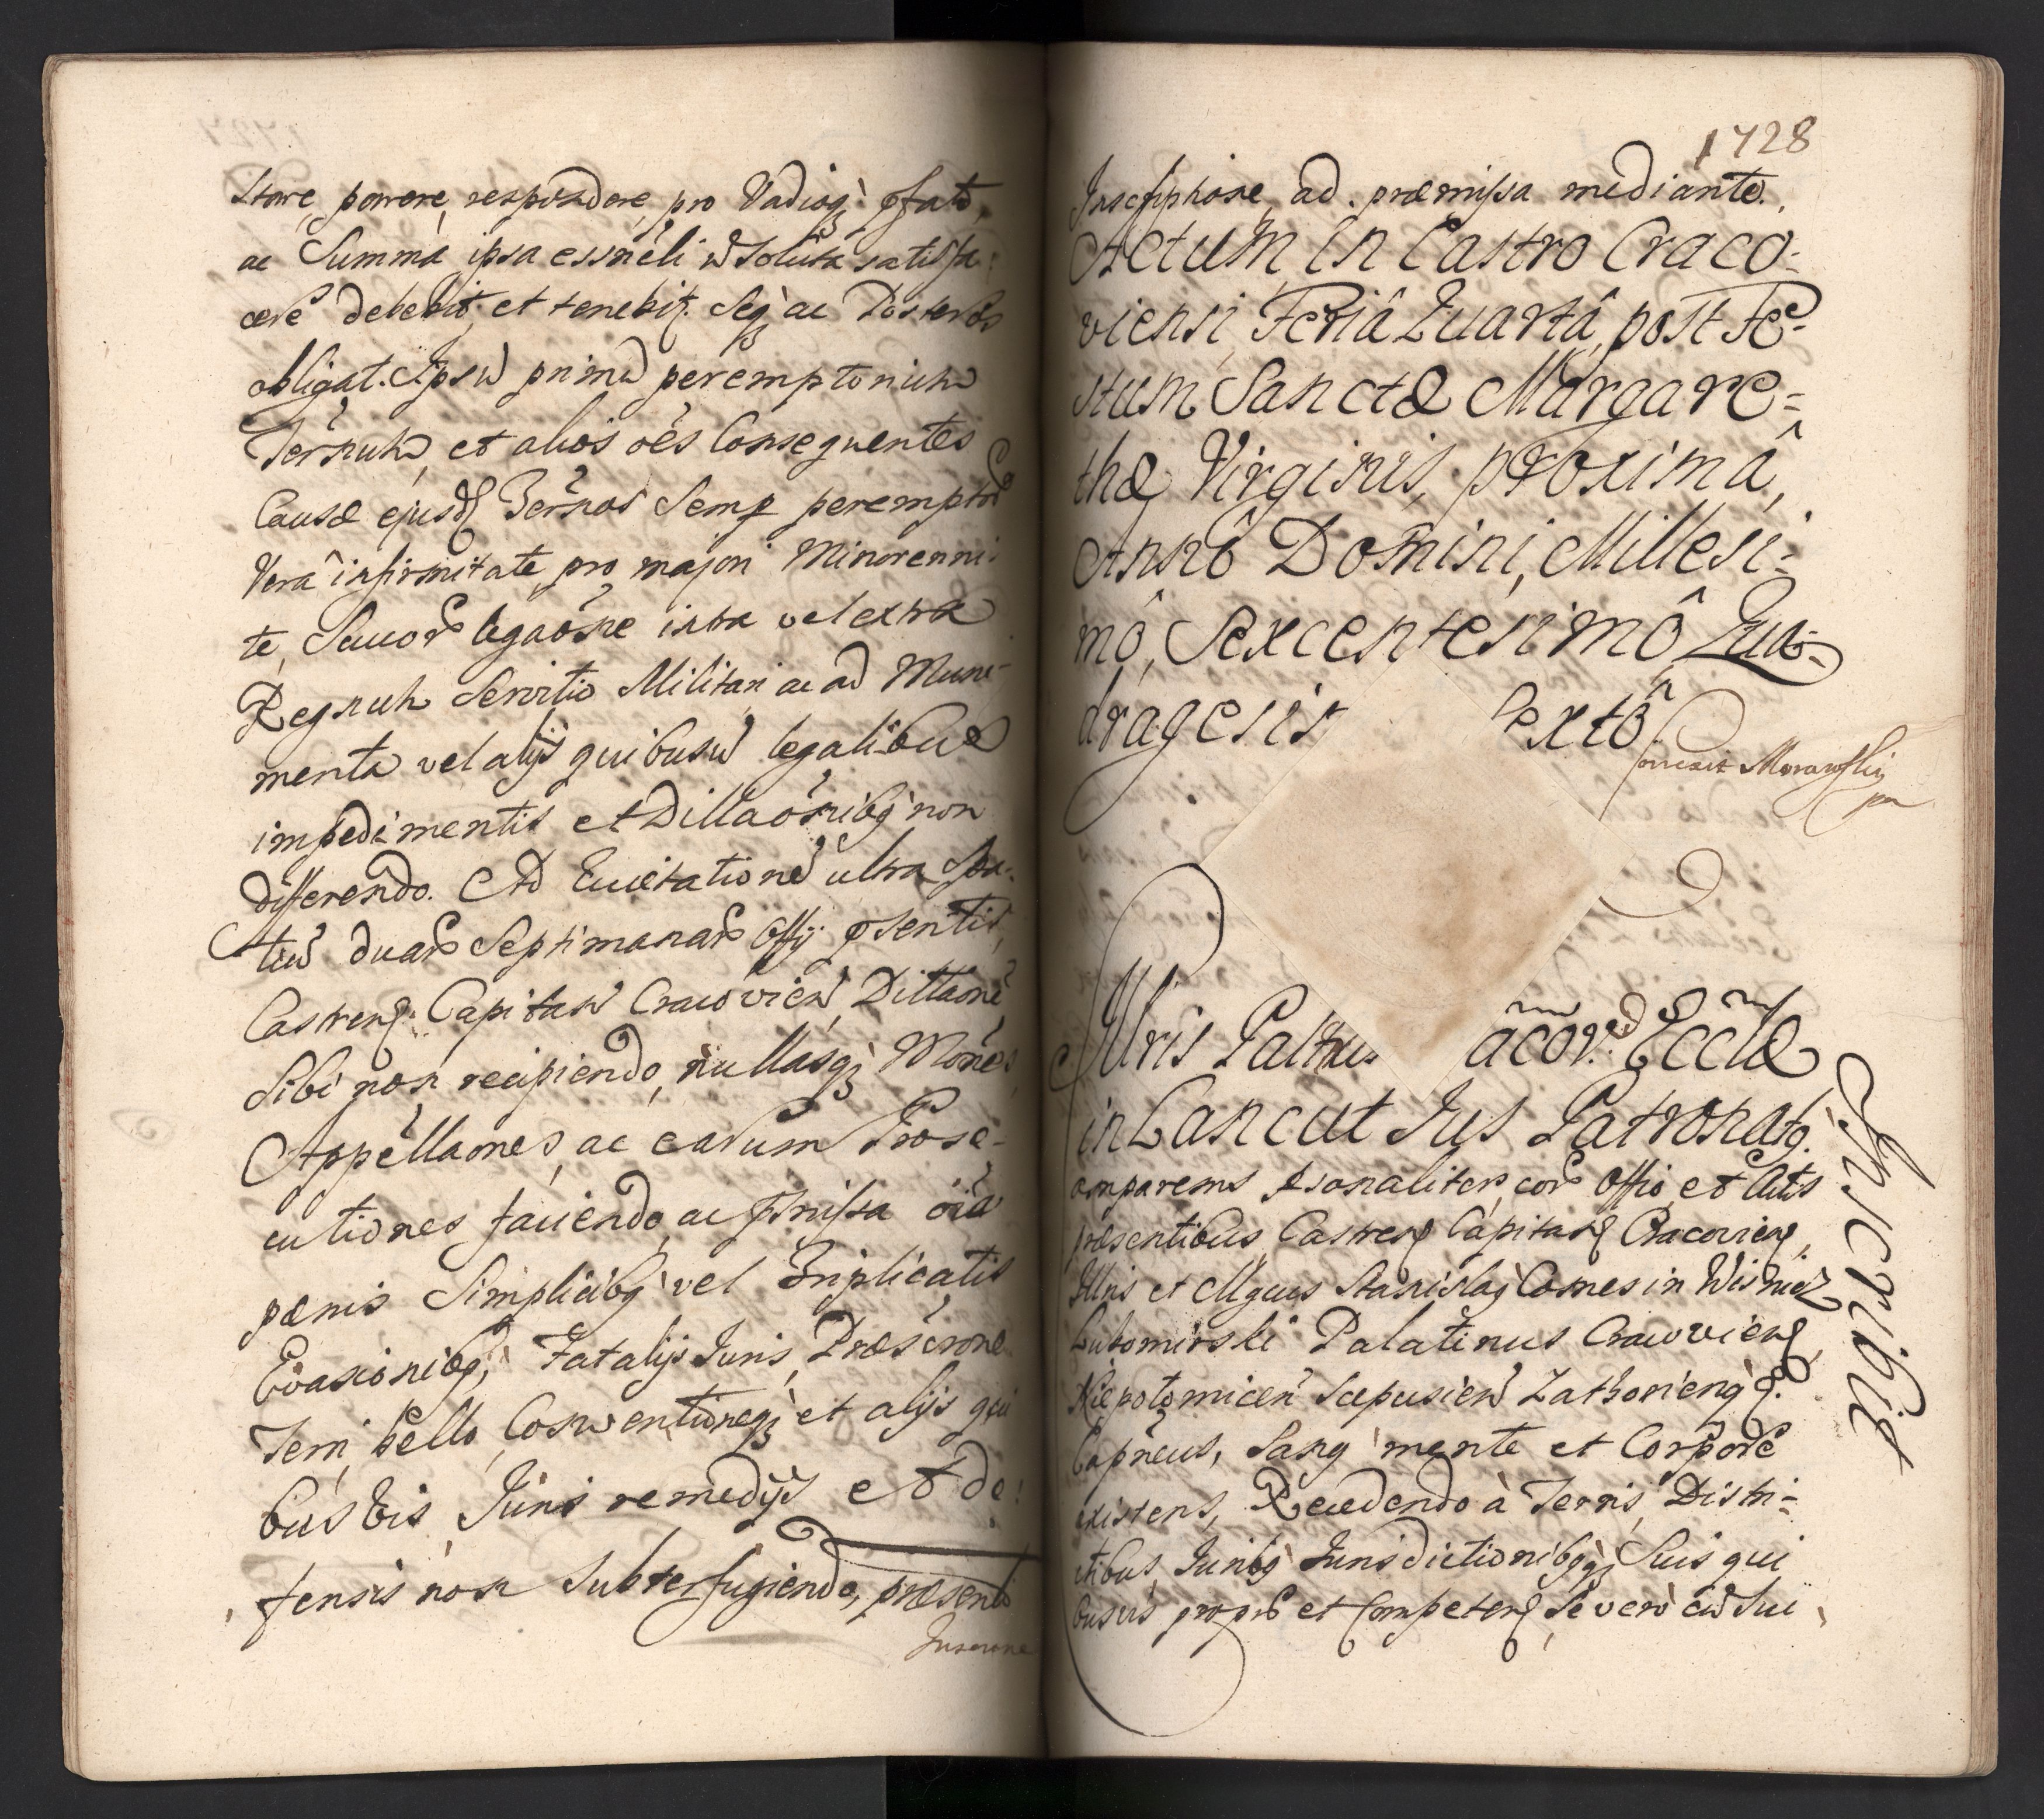 stare, parere, respondere, pro Vadioq; pfato,
ac Summa ipsa essnčli
aere debebit, et tenebit. Seq; ac Posteros
obligat. Ipsũ primũ peremptorium
Terñum, et alios oẽs Consequentes
Causæ ejusd. Terños Semp peremptor
Verâ infirmitate pro majori Minorenni-
te, legaõne intra vel extra
Regnum Servitio Militari ac ad Muni-
menta vel alijs quibusũ legalibus
impedimentis et Dillaõnibq non
differendo. Ad Evictationẽ ultra Spa-
tiũ duar Septimanar Offij psentis
Castren. Capitan Cracovień Dillaõne
Sibi non recipiendo, nullasq; Moñes
Appellaones, ac earum Prose-
cutiones faciendo, ac pmissa õia
pænis Simplicibq vel Triplicatis
Evasionibq, Fatalijs Juris, Præscrone
Teřři, bello, Conventioneq; et alijs qui
busvis Juris remedijs et de:
fensis non Subterfugiendo, præsenti
Inscrone
1728
Inscriphone, ad præmissa mediante.
Actum in Castro Craco-
viensi, Feriâ Quartâ, post Fe-
stum Sanctæ Margare-
thæ Virginis, proximâ,
Annô Domini, Millesi-
mô, Sexcentesimô Qua-
dragesi Sextô
Correxit Morawski
Jllris Palatinus acov: Eccłæ
in Lancut Jus Patronatq.
Inscribit
Comparens Psonaliter cor Offio et Actis
præsentibus Castren Capitan Cracovien,
Jllris et Mgcus Stanislaq Comes in Wisnicz
Lubomirski Palatinus Cracovien
Niepołomiceń Scepusień Zathorienq;
Capneus, Sang mente et Corpore
existens, Recedendo à Terris, Distri-
ctibus, Juribq Jurisdictionibqq; Suis qui
busvis propris et Competen, Se vero cũ Suc